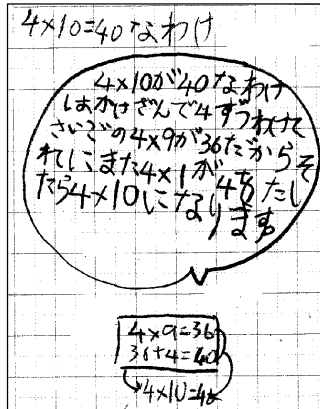 4×10=40なわけ
4×10が40なわけ
はかけざんで4ずつわけて
さいごの4×9が36だからそ
れにまた4×1が4をたし
たら4×10になります。
4×9=36
36+4=40
4×10=40